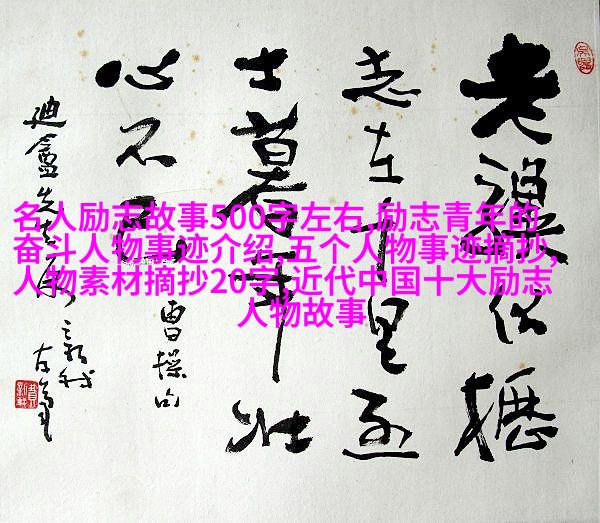 名人励志故事500字左右,励志青年的
奋斗人物事迹介绍,五个人物事迹摘抄,
人物素材摘抄20字,近代中国十大励志
人物故事
老驥伏櫪
志在千里烈
士暮年壮
心不已
曹操句
迪盦先生